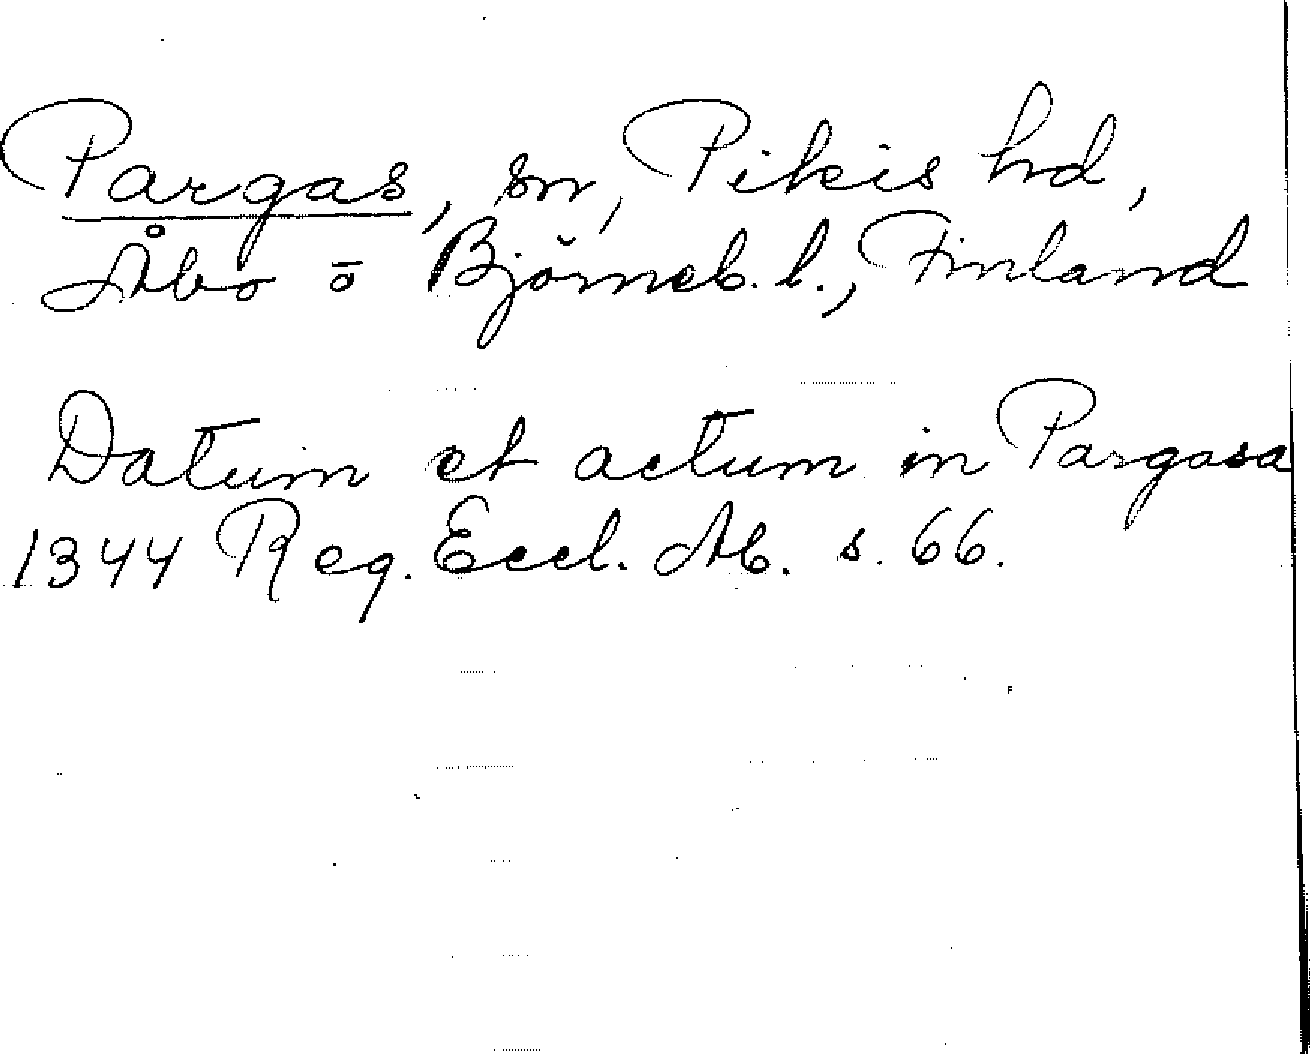 Pargas, sn, Pikis hd,
Åbo o Björneb. l., Finland
Datum et actum in Pargasa
1344 Reg. Eccl. Ab. s. 66.